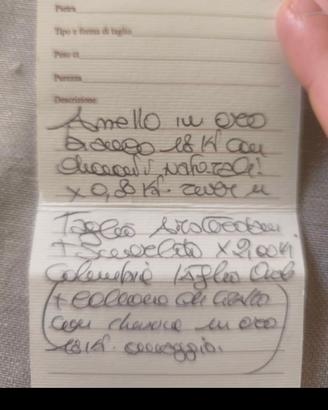 Pietra
Tipo e forma di taglio
Peso ct
Purezza
Descrizione
Anello in oro
bianco 18 Kt con
diamanti naturali
x 0,80 Kt.
Taglio
+ Smeraldo x 2,00 Kt
Colombia taglio
+ collana di
con chiusura in oro
18 Kt. omaggio.